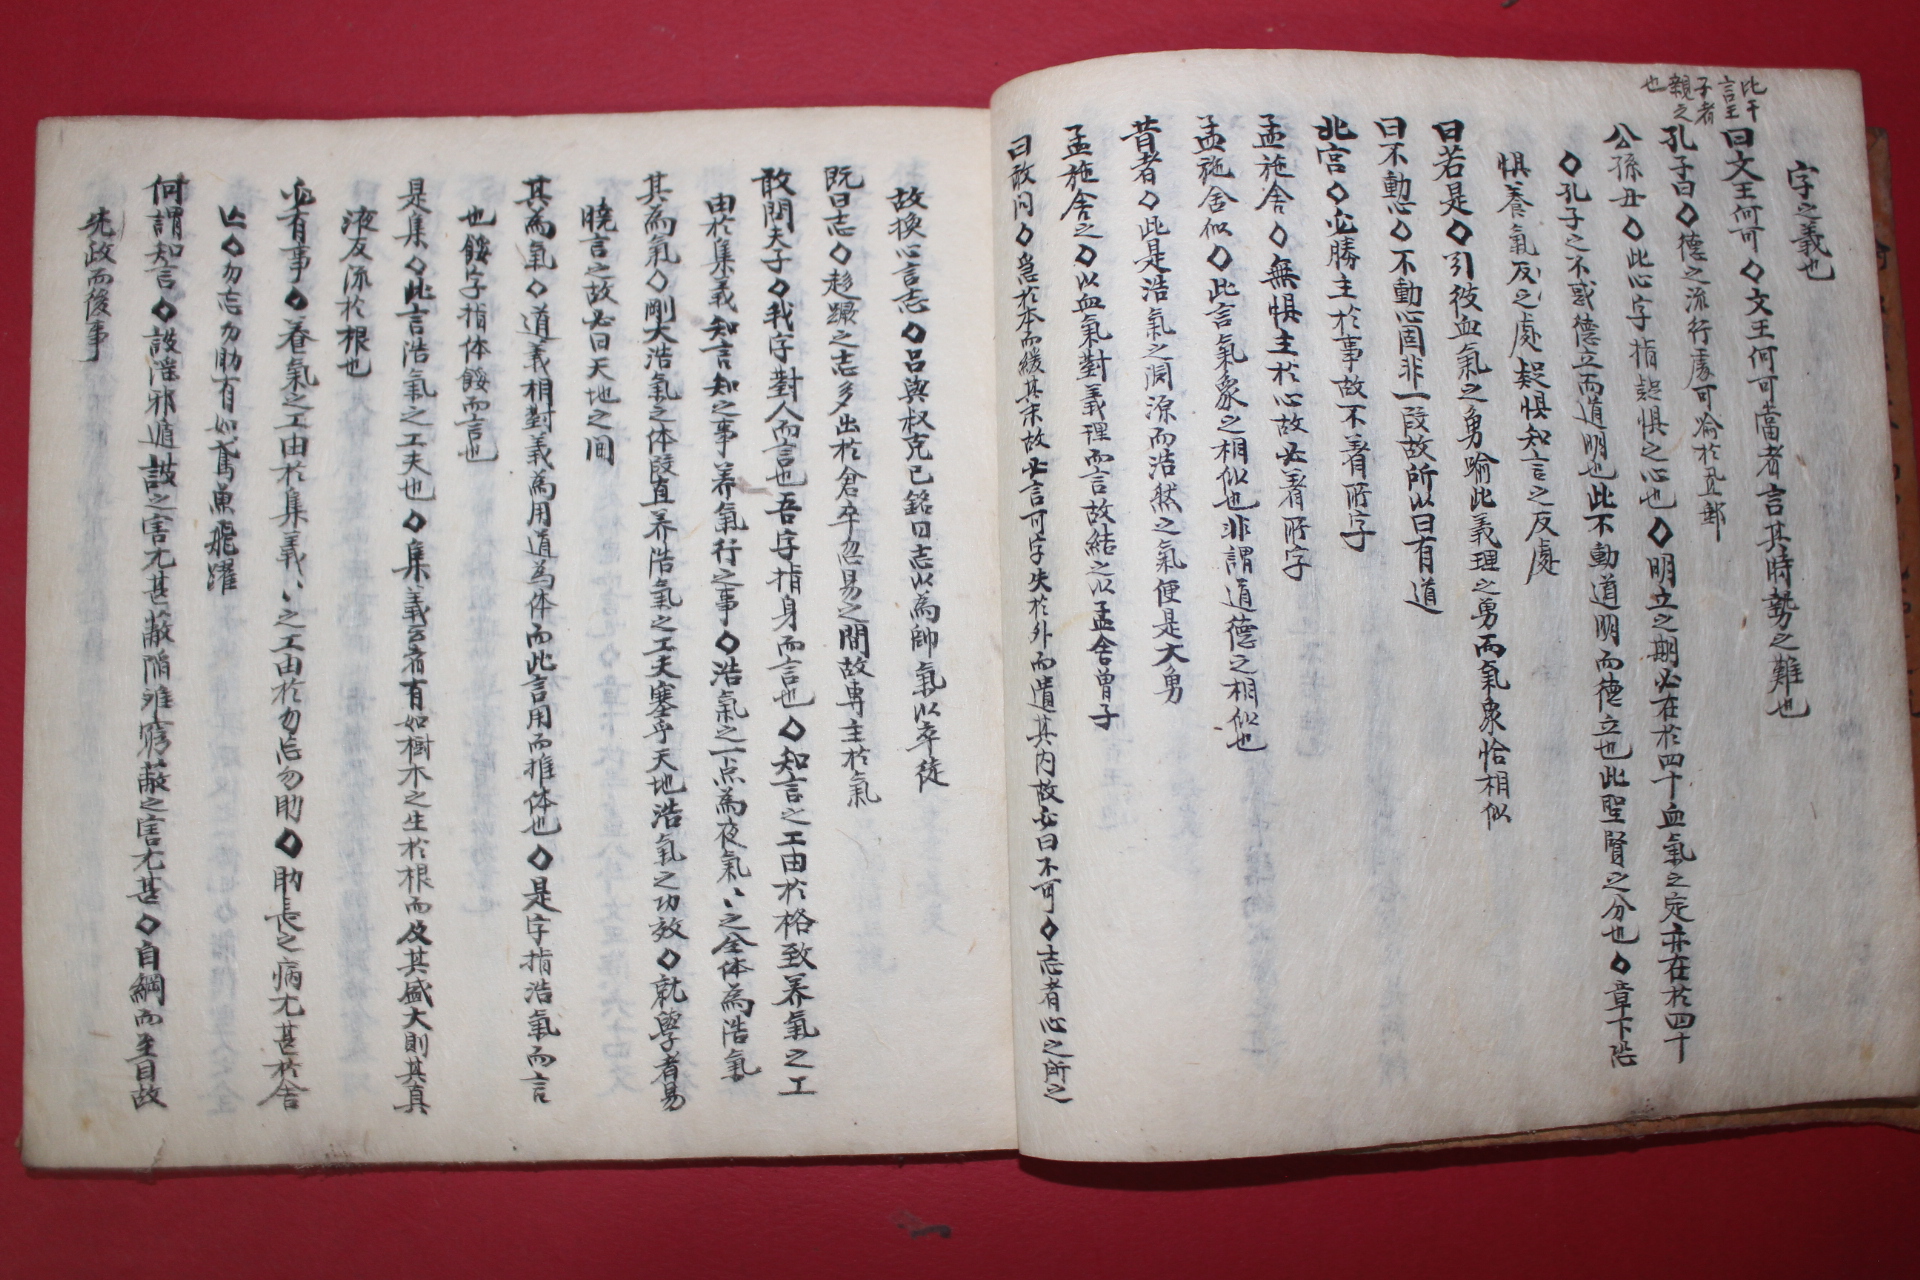 比干
言王
子者
親之
也
字之義也
曰文王何可◇文王何可當者言其時勢之難也
孔子曰◇德之流行處可喻於置郵
公孫丑◇此心字指疑惧之心也◇明立之期必在於四十血氣之定亦在於四十
◇孔子之不惑德立而道明也此不動道明而德立也此聖賢之分也◇章下
惧養氣反之處疑惧知言之反處
曰若是◇引彼血氣之勇喻此義理之勇而氣象恰相似
曰不動心◇不動心固非一段故所以曰有道
北宮◇必勝主於事故不著所字
孟施舍◇無惧主於心故必著所字
孟施舍似◇此言氣象之相似也非謂道德之相似也
昔者◇此是浩氣之関源而浩然之氣便是大勇
孟施舍之◇以血氣對義理而言故結之以孟舍曾子
曰敢问◇急於本而緩其末故必言可字失於外而遺其内故必曰不可◇志者心之所之
故換心言志◇呂與叔克已銘曰志以為帥氣以卒徒
既曰志◇趍蹶之志多出於倉卒忽易之間故專主於氣
敢問夫子◇我字對人而言也吾字指身而言也◇知言之工由於格致养氣之工
由於集義知言知之事养氣行之事◇浩氣之一点為夜氣〻之全体為浩氣
其為氣◇剛大浩氣之体段直养浩氣之工夫塞乎天地浩氣之功效◇就學者易
曉言之故必曰天地之间
其為氣◇道義相對義為用道為体而此言用而推体也◇是字指浩氣而言
也餒字指体餒而言也
是集◇此言浩氣之工夫也◇集義云者有如樹木之生於根而及其盛大則其真
液反流於根也
必有事◇養氣之工由於集義〻之工由於勿忘勿助◇助長之病尤甚於舍
亡◇勿忘勿助有如鳶魚飛躍
何謂知言◇詖淫邪遁詖之害尤甚蔽陷離窮蔽之害尤甚◇自綱而至目故
先政而後事